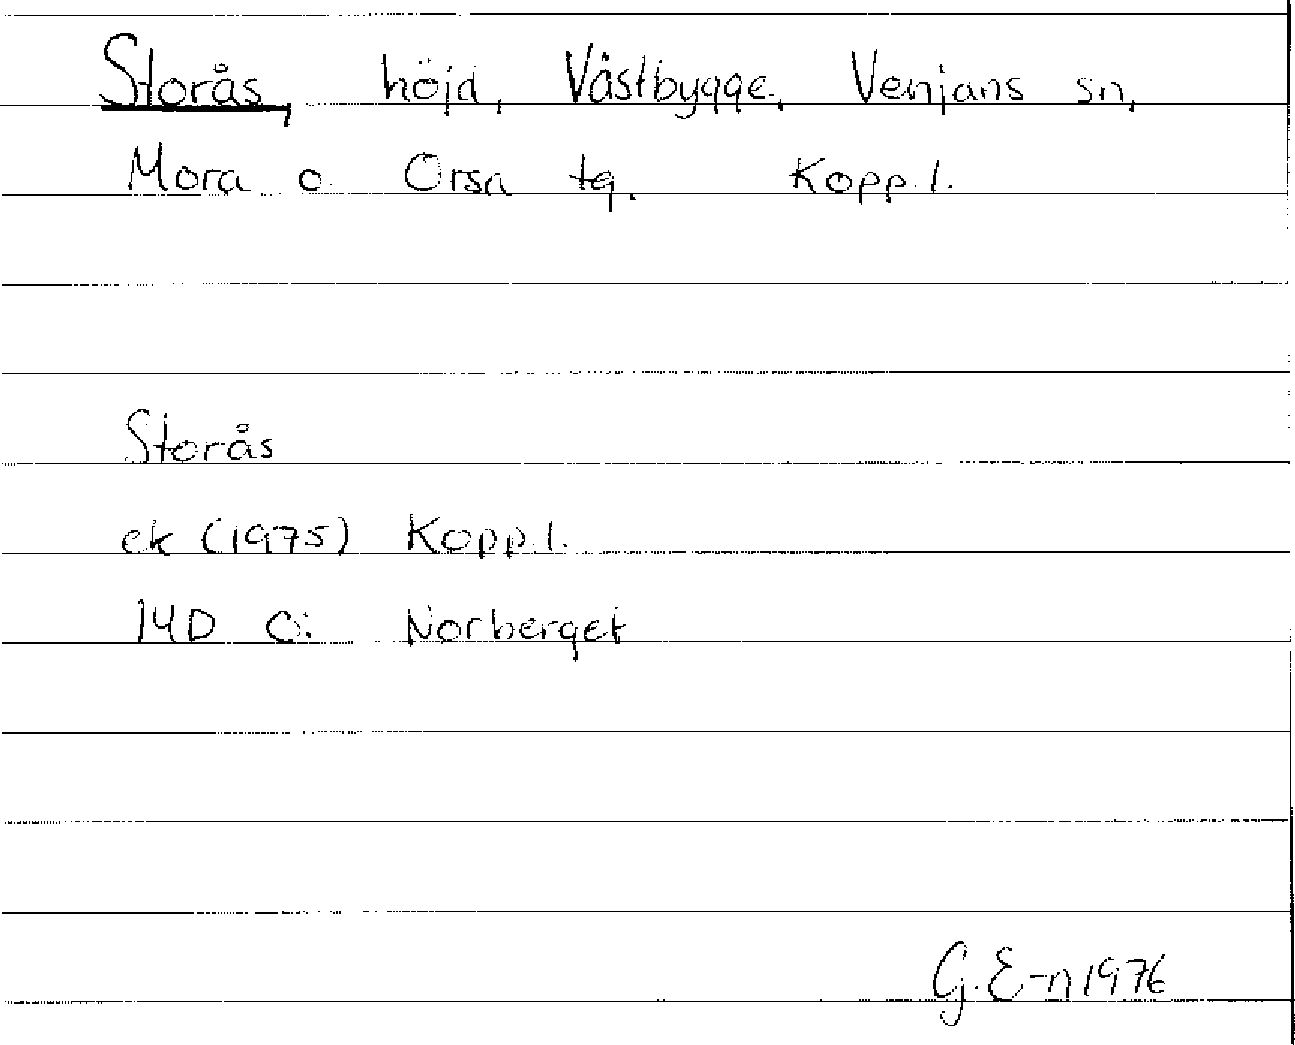 Storås, höjd, Västbygge, Venjans sn,
Mora o Orsa tg. Kopp.l.
Storås
ek (1975) Kopp.l.
14D c: Norberget
G.E-n 1976